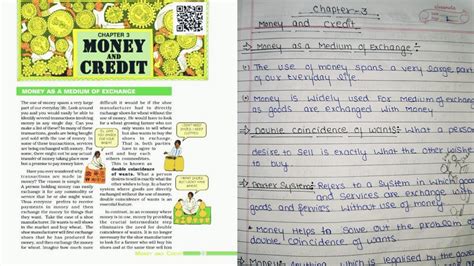 CHAPTER 3
MONEY
AND
CREDIT
MONEY AS A MEDIUM OF EXCHANGE
The use of money spans a very large
part of our everyday life. Look around
you and you would easily be able to
identify several transactions involving
money in any single day. Can you
make a list of these? In many of these
transactions, goods are being bought
and sold with the use of money. In
some of these transactions, services
are being exchanged with money. For
some, there might not be any actual
transfer of money taking place now
but a promise to pay money later.
Have you ever wondered why
transactions are made in
money? The reason is simple.
A person holding money can easily
exchange it for any commodity or
service that he or she might want.
Thus everyone prefers to receive
payments in money and then
exchange the money for things that
they want. Take the case of a shoe
manufacturer. He wants to sell shoes
in the market and buy wheat. The
shoe manufacturer will first exchange
shoes that he has produced for
money, and then exchange the money
for wheat. Imagine how much more
difficult it would be if the shoe
manufacturer had to directly
exchange shoes for wheat without the
use of money. He would have to look
for a wheat growing farmer who not
only wants to sell wheat
but also wants to buy the
shoes in exchange.
That is, both parties
have to agree to
sell and buy each
others commodities.
This is known as
double coincidence
of wants. What a person
desires to sell is exactly what the
other wishes to buy. In a barter
system where goods are directly
exchanged without the use of money,
double coincidence of wants is an
essential feature.
In contrast, in an economy where
money is in use, money by providing
the crucial intermediate step
eliminates the need for double
coincidence of wants. It is no longer
necessary for the shoe manufacturer
to look for a farmer who will buy his
shoes and at the same time sell him
MONEY AND CREDIT
Chapter-3
Money and credit
Money as a Medium of Exchange:
The use of money spans a very large part
of our Everyday life
Money is widely used for Medium of exchange
as goods are exchanged with money
Double coincidence of wants: What a person
desire to sell is exactly what the other wishes
to buy.
System: Refers to a system in which goods
and services are exchange with
goods and services without use of money
Money Helps to solve out the problem of
double coincidence of wants
which is legalised by the